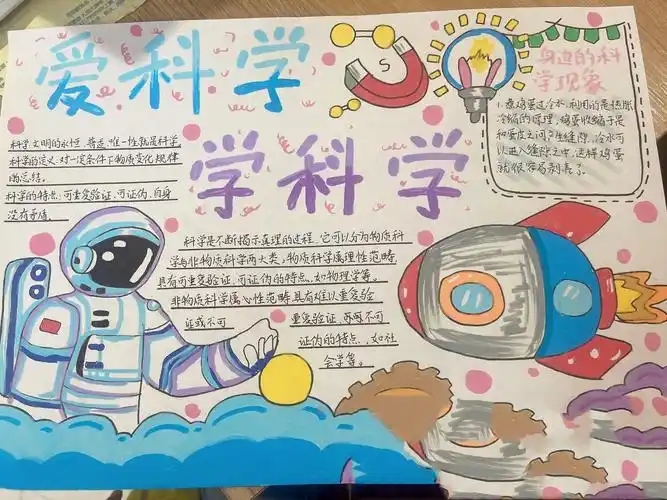 爱科学
学科学
S
身边的科
学现象
1.煮鸡蛋过冷水,利用的是热胀
冷缩的原理,鸡蛋收缩于是
和蛋皮之间产生缝隙,冷水可
以进入缝隙之中,这样鸡蛋
就很容易剥表了。
科学文明的永恒、普适、惟一性就是科学。
科学的定义:对一定条件下物质变化规律
的总结。
科学的特点:可重复验证、可证伪、自身
没有矛盾。
科学是不断揭示真理的过程,它可以分为物质科
学与非物质科学两大类,物质科学属理性范畴
具有可重复验证、可证伪的特点,如物理学等。
非物质科学属心性范畴具有难以重复验
证或不可
重复验证、亦可不可
证伪的特点,如社
会学等。